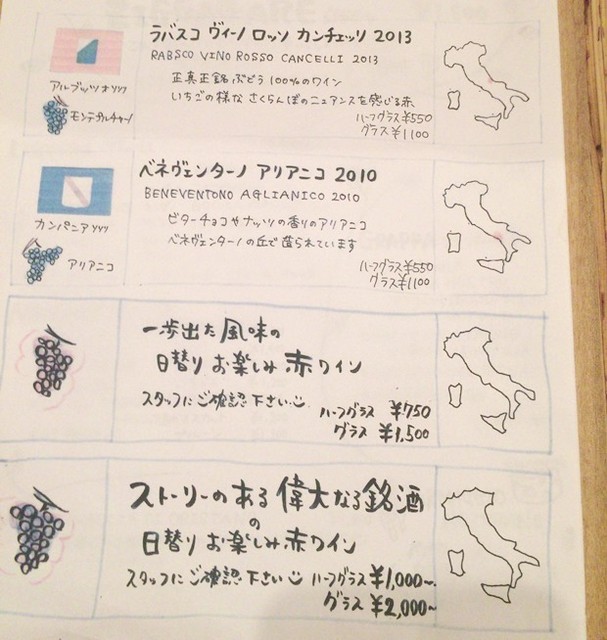 ラバスコ ヴィーノ ロッソ カンチェッリ 2013
RABSCO VINO ROSSO CANCELLI 2013
正真正銘ぶどう100%のワイン
いちごの様な さくらんぼのニュアンスを感じる赤
ハーフグラス ¥550
グラス ¥1100
アルブッツオ
モンテプルチャーノ
ベネヴェンターノ アリアニコ 2010
BENEVENTONO AGLIANICO 2010
ビターチョコやナッツの香りのアリアニコ
ベネヴェンターノの丘で造られています
ハーフグラス ¥550
グラス ¥1100
カンパニア
アリアニコ
一歩出た風味の
日替り お楽しみ 赤ワイン
スタッフにご確認下さい
ハーフグラス ¥750
グラス ¥1,500
ストーリーのある 偉大なる銘酒
の
日替り お楽しみ赤ワイン
スタッフにご確認下さい ハーフグラス ¥1,000~
グラス ¥2,000~